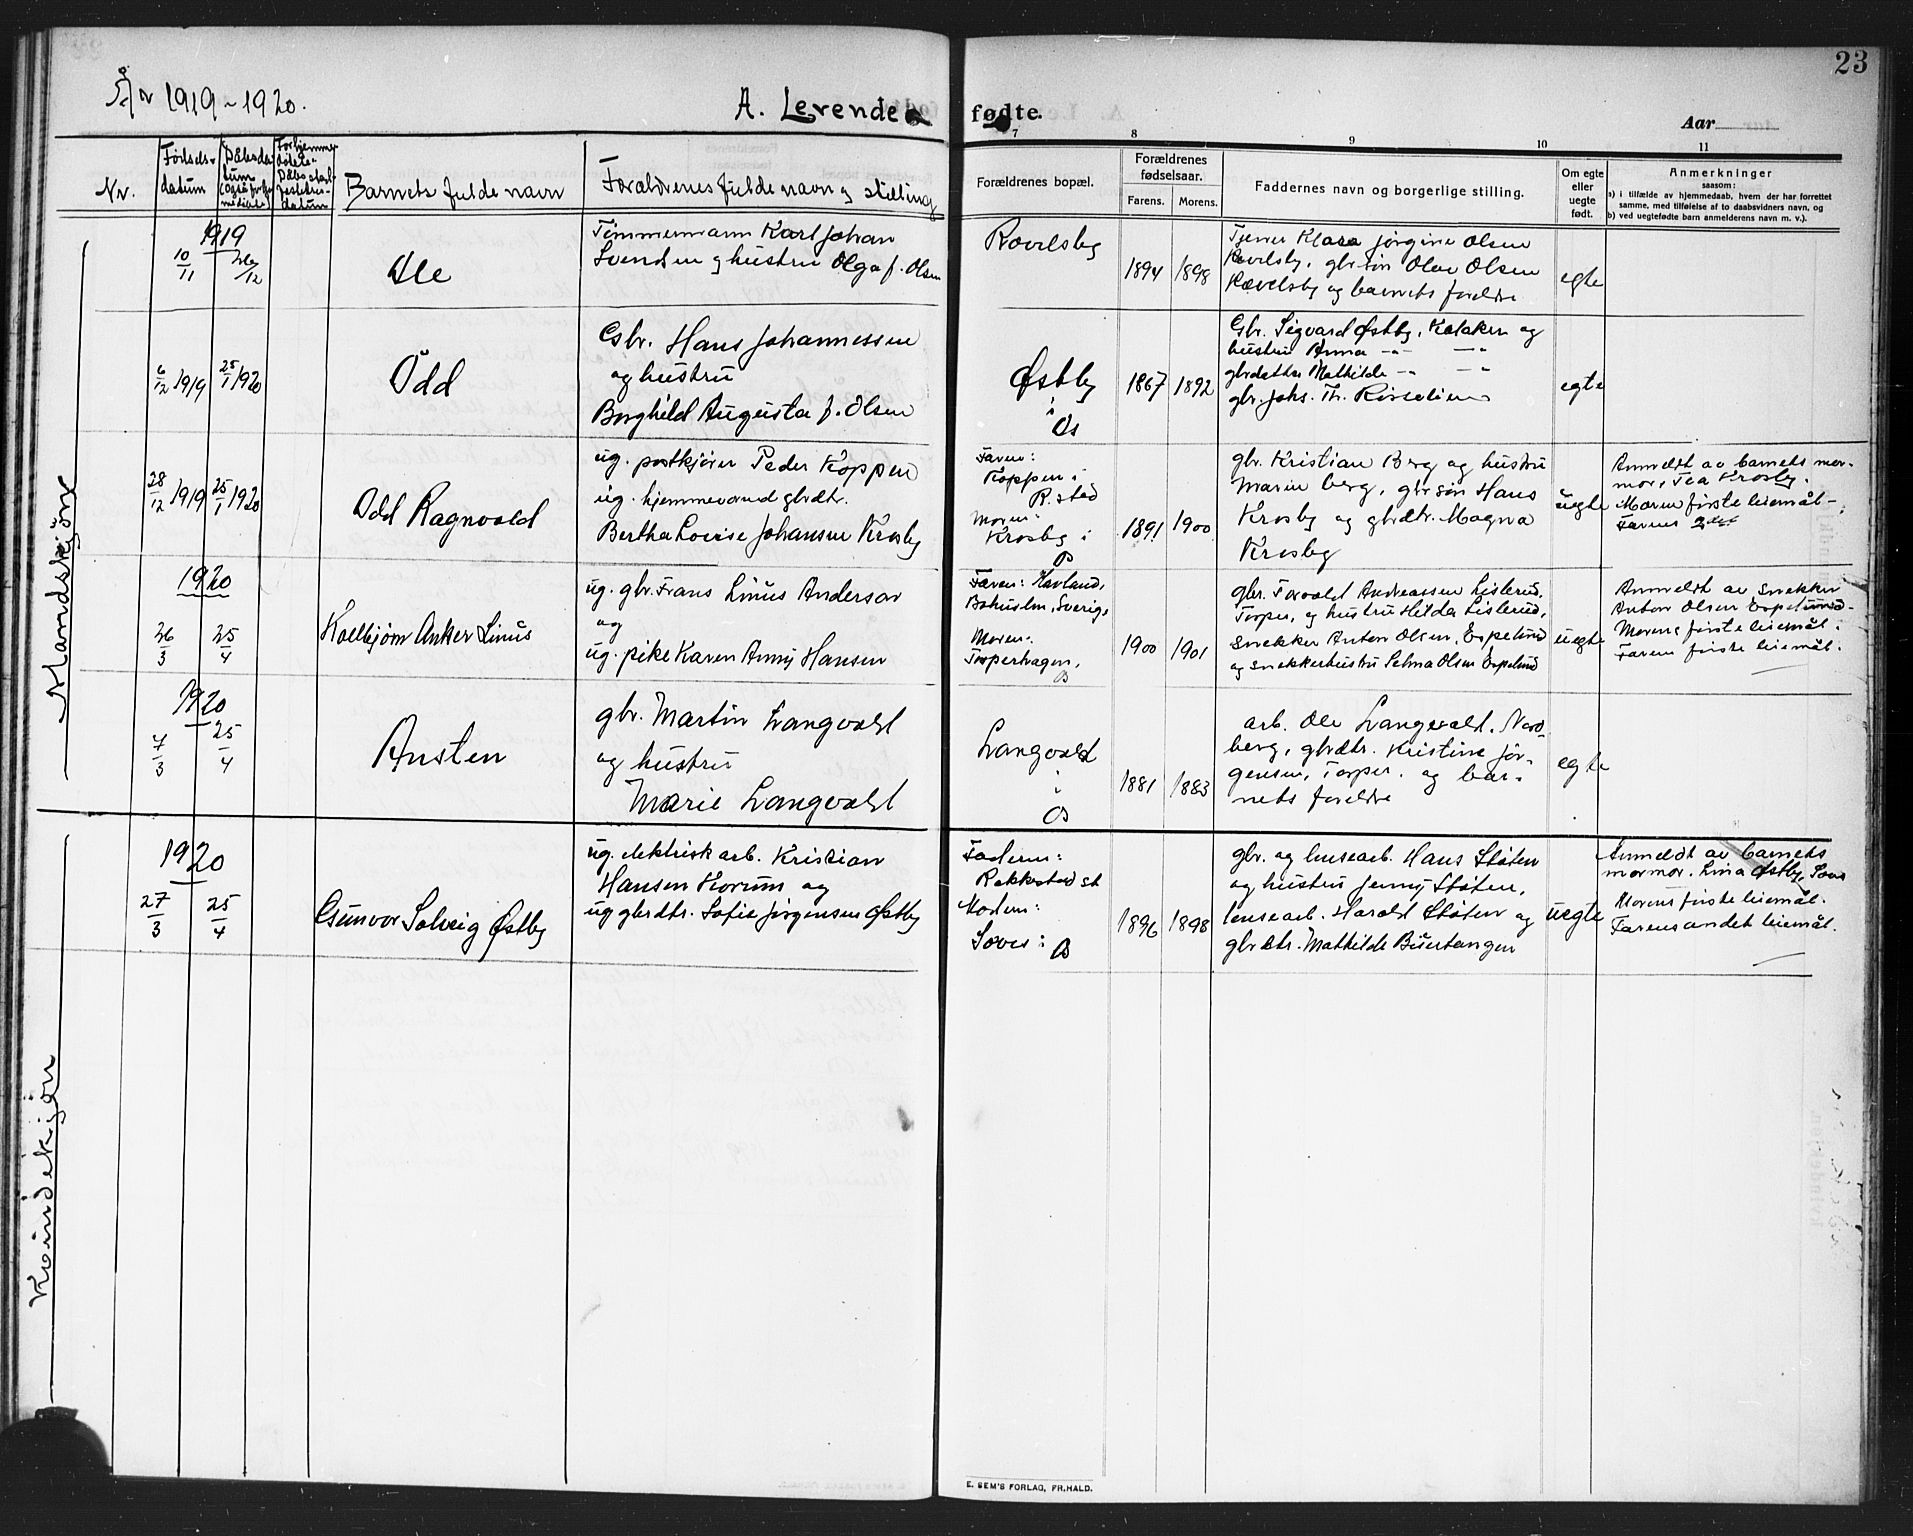 23
År 1919-1920.
A. Levende fødte.
Aar
Nr.
Fødsels-
datum
Barnets fulde navn
Forældrenes fulde navn og stilling
7
Forældrenes bopæl.
8
Forældrenes
fødselsaar.
Farens.
Morens.
9
Faddernes navn og borgerlige stilling.
10
Om egte
eller
uegte
født.
11
Anmerkninger
saasom:
a) i tilfælde av hjemmedaab, hvem der har forrettet
samme, med tilføielse af to daabsvidners navn, og
b) ved uegtefødte barn anmelderens navn m. v.).
Mandskjøn
1919
10/11
26/12
Ole
Tømmermann Karl Johan
Svendsen og hustru Olga f. Olsen
1894
1898
Tjener Klara Jørgine Olsen
gbr.søn Olav Olsen
og barnets foreldre
egte
6/12 1919
25/1 1920
Odd
Gbr. Hans Johannessen
og hustru
Borghild Augusta f. Olsen
Østby
i
Os
1867
1892
Gbr. Sigvard Østby, Kolaker og
hustru Anna -"- -"-
gbrdatter Mathilde -"- -"-
gbr. Johs. Th.
egte
28/12 1919
25/1 1920
Odd Ragnvald
ug. postkjører Peder Koppen
ug. hjemmevaand gbrdtr.
Bertha Lovise Johansen Krosby
Faren:
Koppen i
R.stad
Moren:
Krosby i
Os
1891
1900
gbr. Kristian Berg og hustru
Marin Berg, gbrsøn Hans
Krosby og gbrdtr. Magna
Krosby
uegte
Anmeldt av barnets mor-
mor, Tea Krosby.
Moren første leiemål-;
Farens 2det
1920
26/3
25/4
Kolbjørn Anker Linus
ug. gbr. Frans Linus Anderson
og
ug. pike Karen Anny Hansen
Faren: Havland,
Bohuslen, Sverige
Moren:
Torperhagen,
Os
1900
1901
gbr. Torvald Andreassen Lislerud,
Torper, og hustru Hilda Lislerud,
Snekker Anton Olsen, Espelund
og snekkerhustru Selma Olsen Espelund
uegte
Anmeldt av snekker
Anton Olsen Espelund-
Morens første leiemål:
Farens første leiemål.
1920
7/3
25/4
Austen
gbr. Martin Langvald
og hustru
Marie Langvald
Langvald
i
Os
1881
1883
arb. Ole Langvald, Nord-
berg, gbrdtr. Kristine Jør-
gensen, Torper. og bar-
nets foreldre
egte
Kvindekjøn
1920
27/3
25/4
Gunvor Solveig Østby
ug. elektrisk arb. Kristian
Hansen Korum og
ug gbrdtr. Sofie Jørgensen Østby
Faderen:
Rakkestad st
Moderen:
Os
1896
1898
gbr. og lensearb. Hans Støten
og hustru Jenny Støten,
lensearb. Harald Støten og
gbrdtr. Mathilde Buertangen
uegte
Anmeldt av barnets
mormor. Lina Østby,
Morens første leiemål.
Farens andet leiemål.
E. SEM'S FORLAG, FR.HALD.